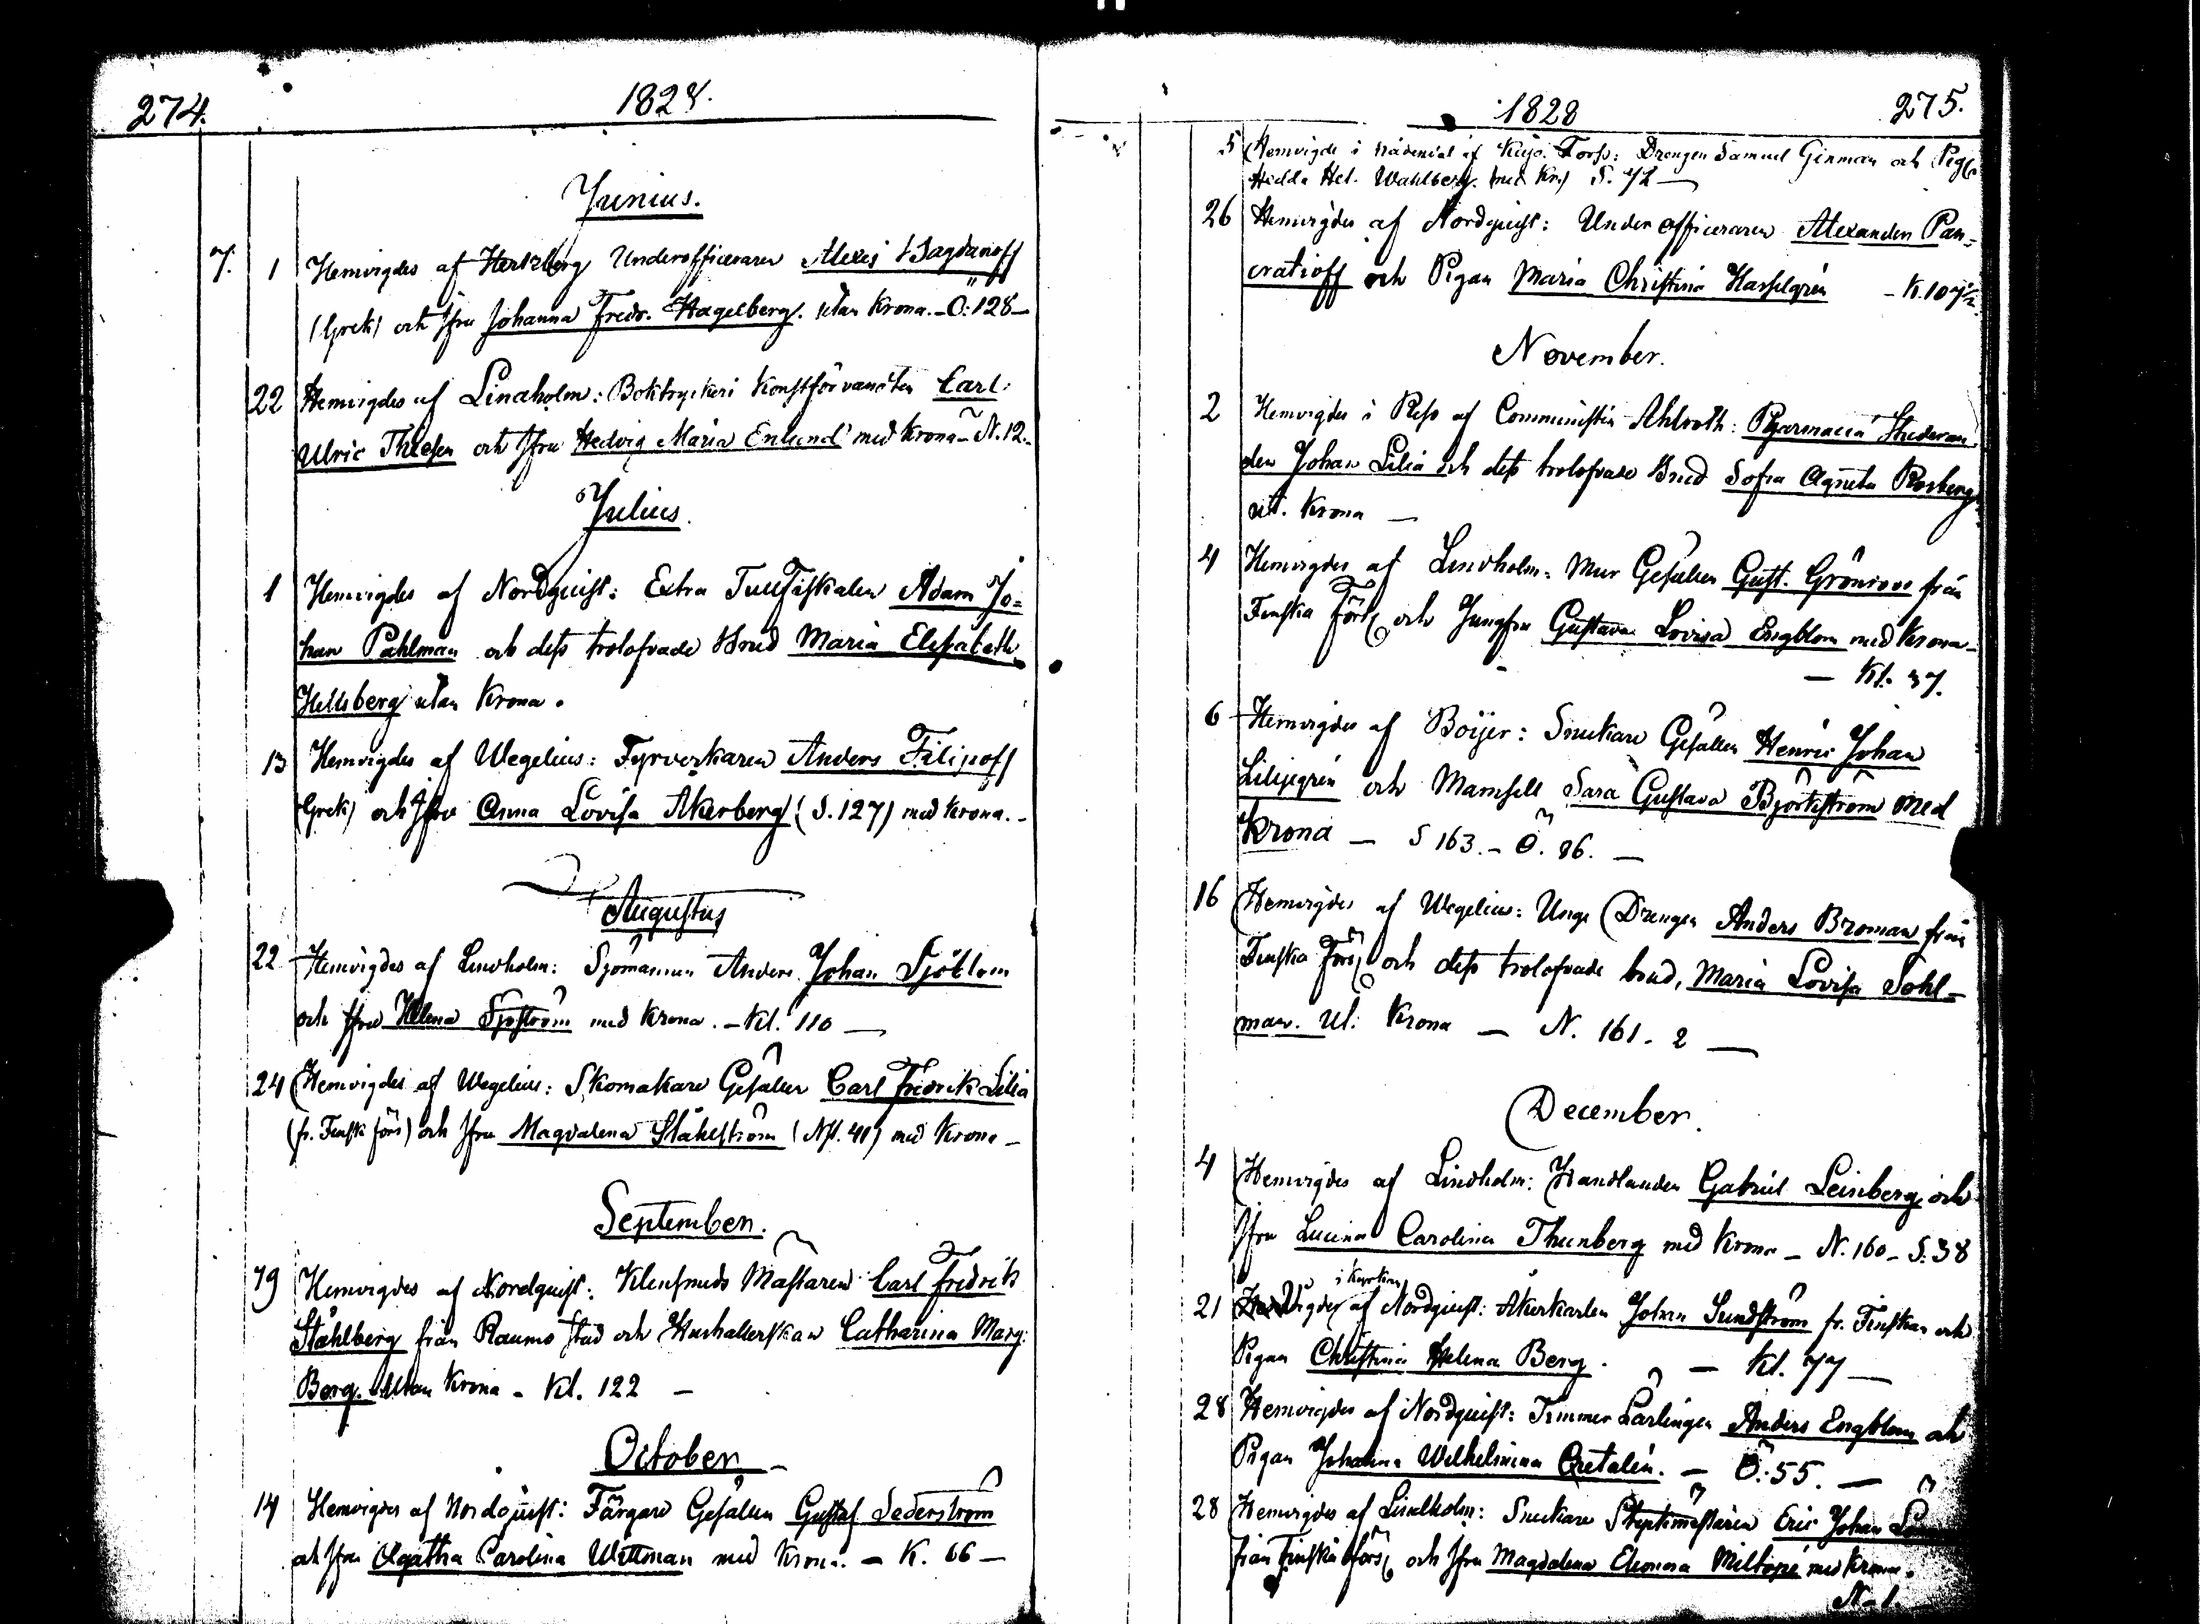 274.
1828.
Junius.
7. 1 Hemvigdes af Hertzberg Underofficeraren Alexej Bagdanoff
(Grek) och Jfru Johanna Fredr. Hagelberg. utan Krona. - Ö: 128 -
22 Hemvigdes af Lindholm: Boktryckeri Konstförvanten Carl
Ulric Thlesen och Jfru Hedvig Maria Enlund med Krona - N. 12.
Julius.
1 Hemvigdes af Nordquist: Extra Tullfiskalen Adam Jo=
han Pahlman och dess trolofvade Brud Maria Elisabeth
Hillsberg utan Krona.
13 Hemvigdes af Wegelius: Fyrverkaren Anders Filipoff
(Grek) och Jfru Anna Lovisa Åkerberg (S. 127) med Krona. -
Augustus
22 Hemvigdes af Lindholm: Sjömannen Anders Johan Sjöblom
och Jfru Helena Sjöström med Krona. - Kl. 110 -
24 Hemvigdes af Wegelius: Skomakare Gesällen Carl Fredrik Lilia
(fr. Finsk förs) och Jfru Magdalena Ståhlström (Nj. 41) med Krona -
September.
19 Hemvigdes af Nordquist: Klensmeds Mästaren Carl Fredrik
Ståhlberg från Raumo stad och Hushållerskan Catharina Marg:
Berg. Utan Krona - Kl. 122 -
October -
14 Hemvigdes af Nordquist: Färgare Gesällen Gustaf Sederström
och Jfru Agatha Carolina Wittman med Krona. - K. 66 -
1828
275.
5 Hemvigde i Nådendal af Torss: Drengen Samuel Ginman och Pig.
Hedda Hel. Wahlberg. med Kr. S. 72 -
26 Hemvigdes af Nordquist: Under officeraren Alexander Pan=
cratioff och Pigan Maria Christina Hasselgrén - K. 107½.
November.
2 Hemvigdes i Reso af Communistin Ahlroth: Pharmacia Studeran
den Johan Lilia och dess trolofvade Brud Sofia Agneta Rosberg
ut. Krona -
4 Hemvigdes af Lindholm: Mur Gesällen Gust. Grönroos från
Finska Förs och Jungfru Gustava Lovisa Engblom med Krona -
- Kl. 37.
6 Hemvigdes af Boijer: Snickare Gesällen Henric Johan
Liljegrén och Mamsell Sara Gustava Björkström med
Krona - S 163. - Ö. 86. -
16 Hemvigdes af Wegelius: Unge Drengen Anders Broman från
Finska Förs och dess trolofvade brud, Maria Lovisa Sohl-
man. Ut: Krona - N. 161. 2 -
December.
4 Hemvigdes af Lindholm: Handlanden Gabriel Leinberg och
Jfru Lucina Carolina Thunberg med Krona - N. 160 - S. 38
i Kyrkan
21 Vigdes af Nordquist: Åkerkarlen Johan Sundström fr. Finskan och
Pigan Christina Helena Berg. - Kl. 77 -
28 Hemvigdes af Nordquist: Timmer Lärlingen Anders Engblom och
Pigan Johanna Wilhelmina Cretalén. - Ö. 55. -
28 Hemvigdes af Lindholm: Snickare Eric Johan
från Finska förs och Jfru Magdalena Eleonora Miltopé med Krona.
N. 1.